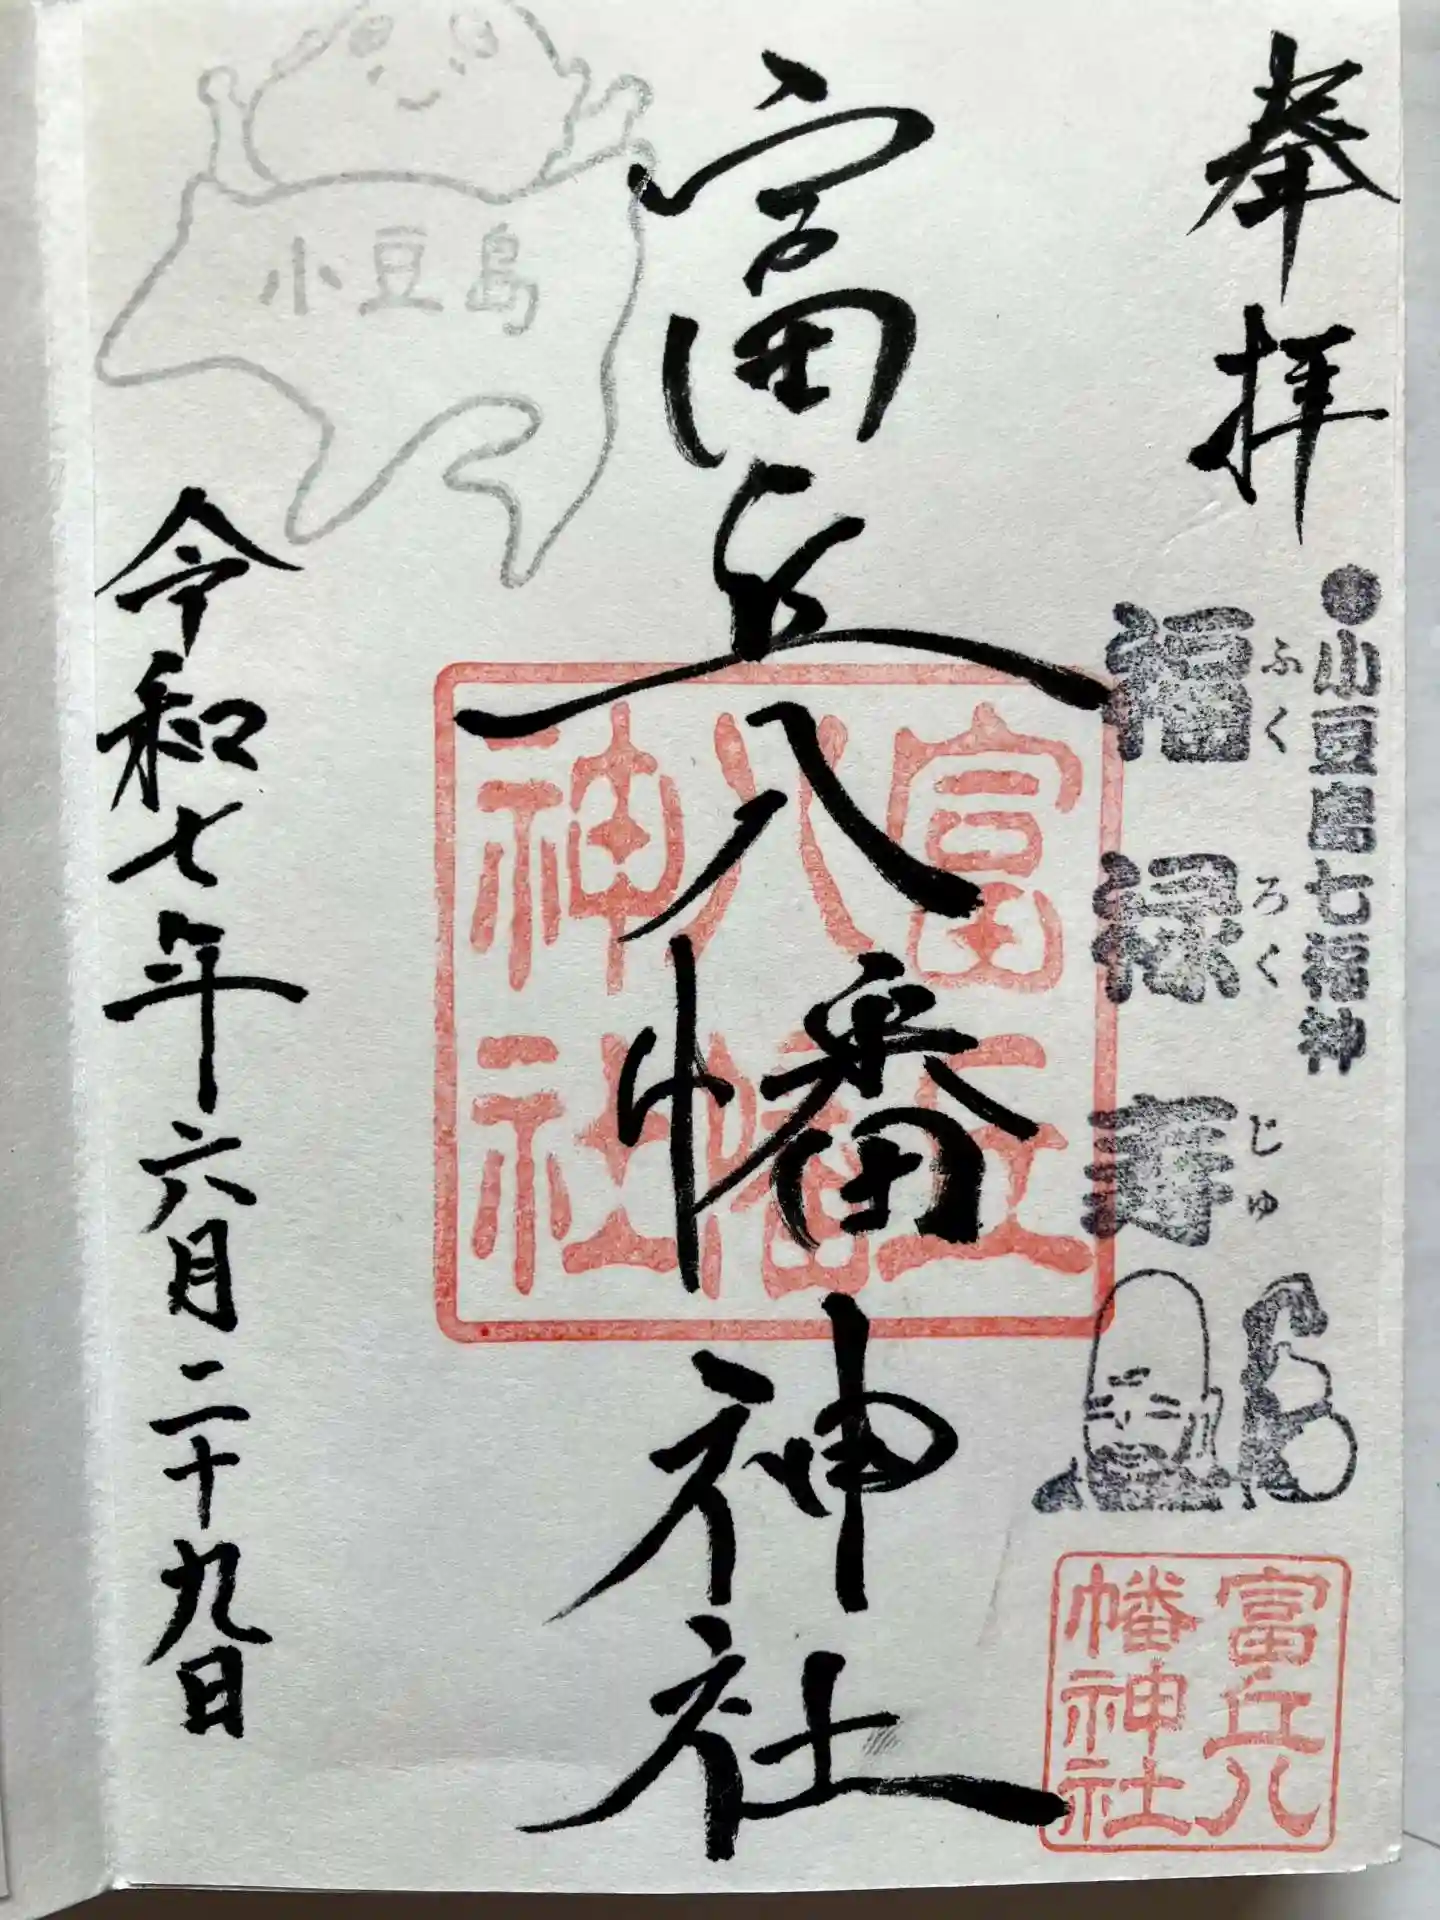 奉拝
●小豆島七福神
福禄寿
ふくろくじゅ
富丘八幡神社
富丘八幡神社
富丘八幡神社
小豆島
令和七年六月二十九日